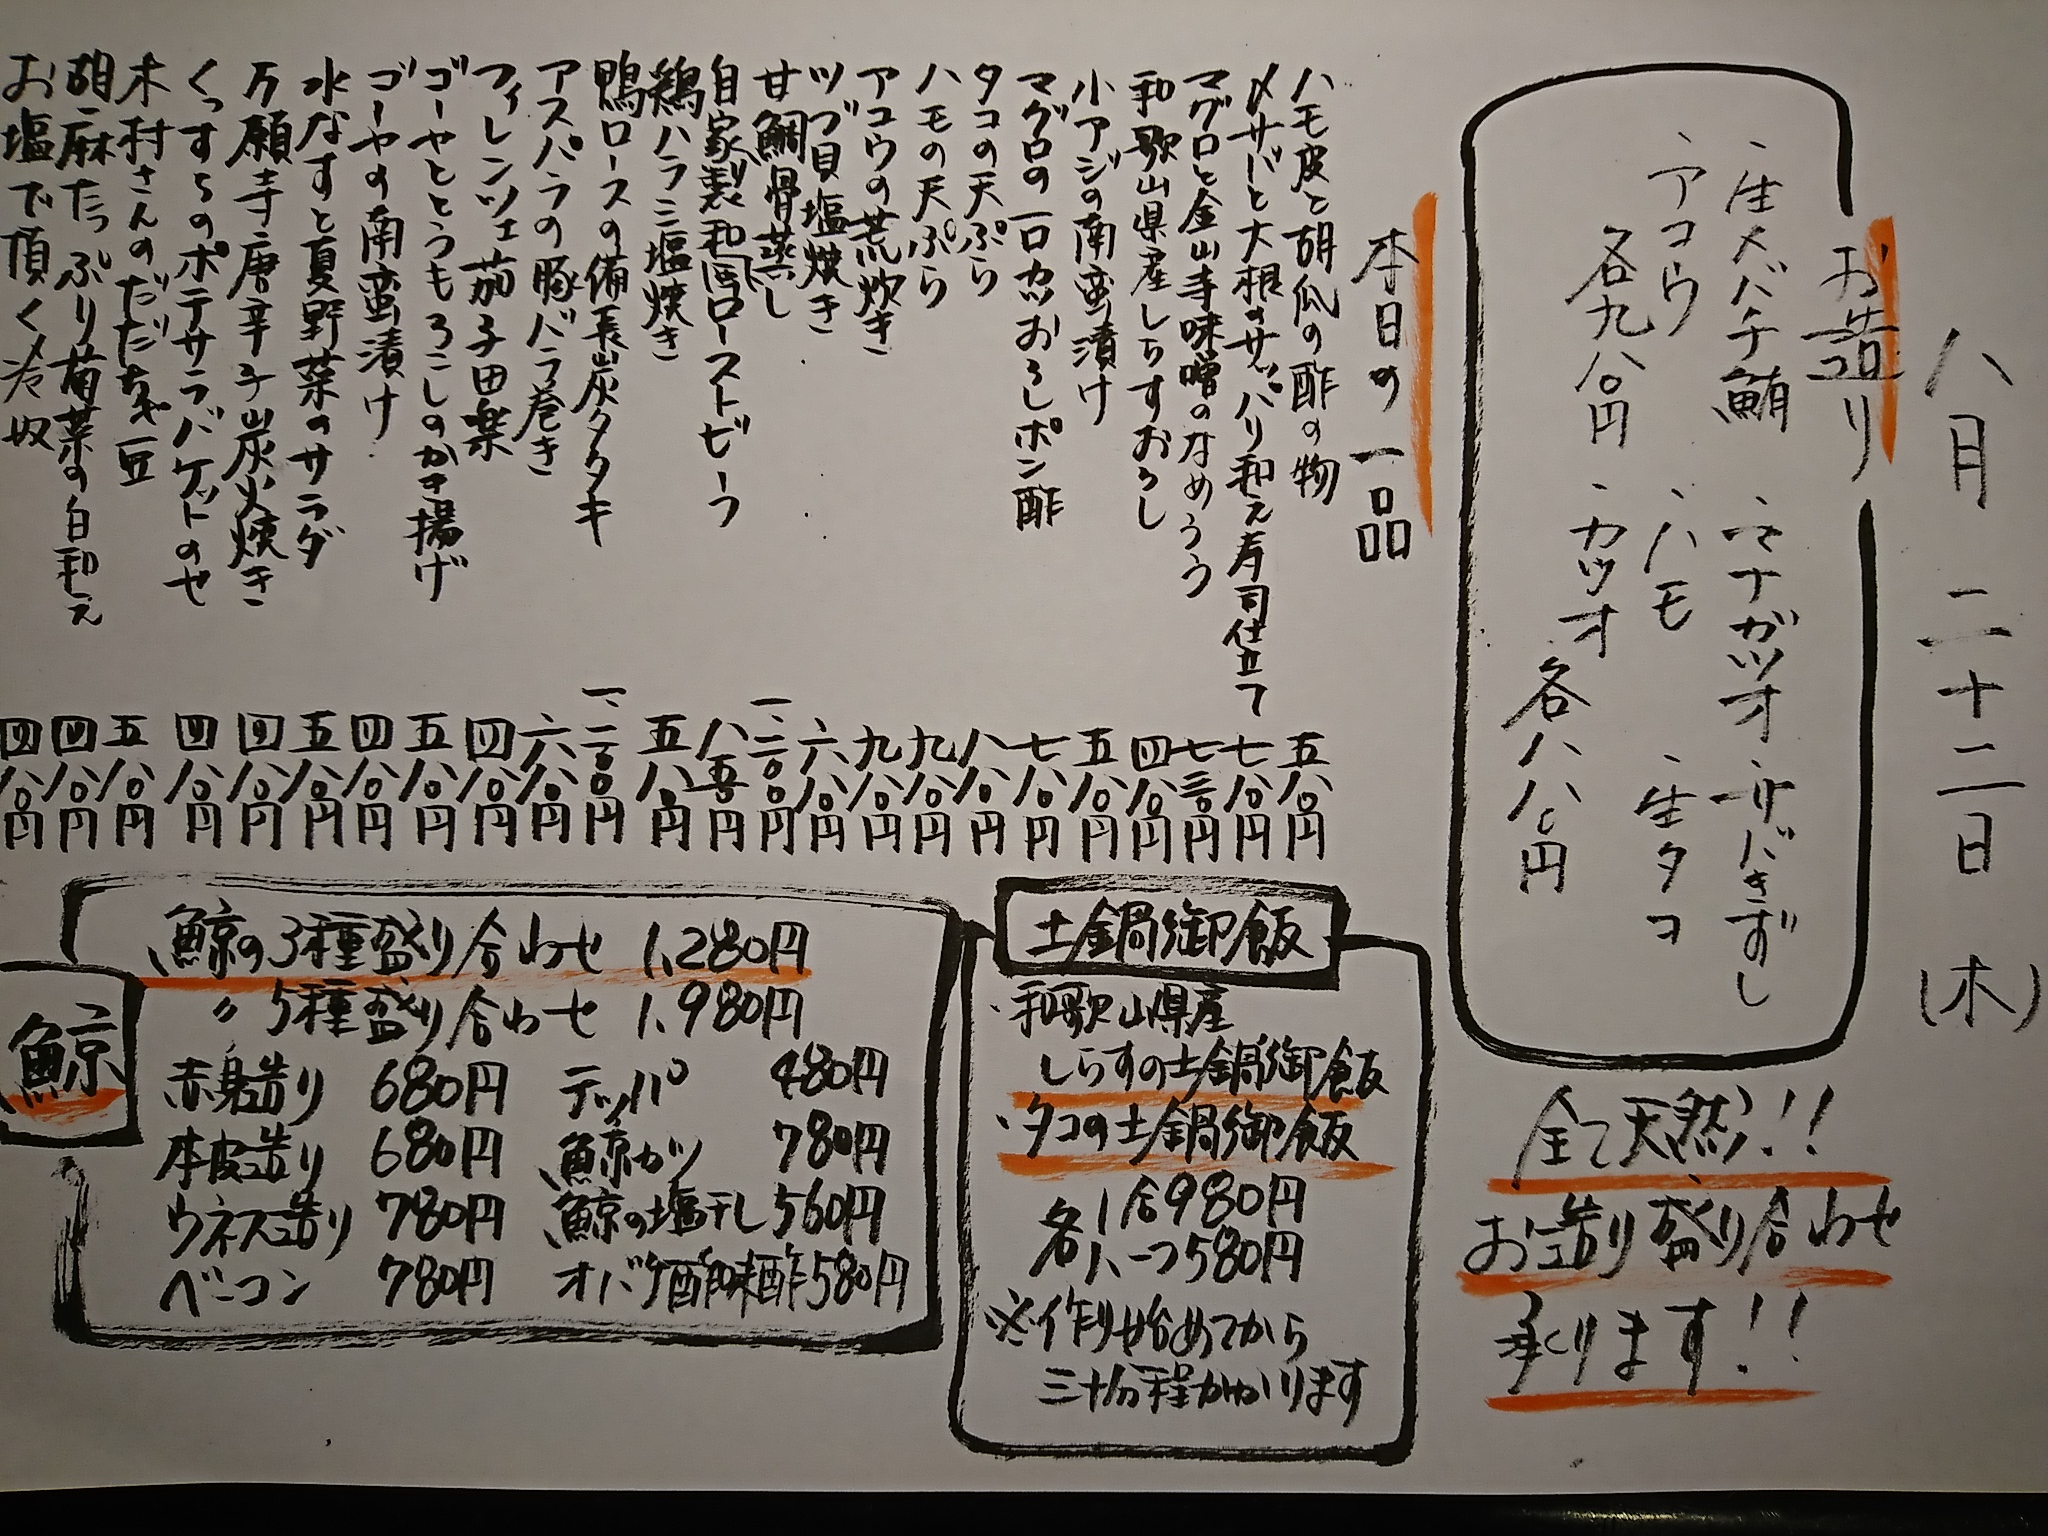 八月 二十二日 (木)
お造り
・生メバチ鮪 ・マナガツオ ・サバきずし
・アコウ ・ハモ ・生タコ
各九八〇円 ・カツオ 各八八〇円
全て天然!!
お造り盛り合わせ
承ります!!
本日の一品
ハモ皮と胡瓜の酢の物 五八〇円
〆サバと大根のサッパリ和え寿司仕立て 七八〇円
マグロと金山寺味噌のなめろう 七三〇円
和歌山県産しらすおろし 四八〇円
小アジの南蛮漬け 五八〇円
マグロの一口カツおろしポン酢 七八〇円
タコの天ぷら 八八〇円
ハモの天ぷら 九八〇円
アコウの荒炊き 九八〇円
ツブ貝塩焼き 六八〇円
甘鯛骨蒸し 一、二〇〇円
自家製和風ローストビーフ 八五〇円
鶏ハラミ塩焼き 五八〇円
鴨ロースの備長炭タタキ 一、二〇〇円
アスパラの豚バラ巻き 六八〇円
フィレンツェ茄子田楽 四八〇円
ゴーヤととうもろこしのかき揚げ 五八〇円
ゴーヤの南蛮漬け 四八〇円
水なすと夏野菜のサラダ 五八〇円
万願寺唐辛子炭火焼き 四八〇円
くっすらのポテサラバケットのせ 四八〇円
木村さんのだだちゃ豆 五八〇円
胡麻たっぷり菊菜の白和え 四八〇円
お塩で頂く冷奴 四八〇円
土鍋御飯
・和歌山県産
しらすの土鍋御飯
・タコの土鍋御飯
各1合980円
各ハーフ580円
※作り始めてから
三十分程かかります
鯨
鯨の3種盛り合わせ 1,280円
〃 5種盛り合わせ 1,980円
赤身造り 680円 テッパ 480円
本皮造り 680円 鯨カツ 780円
ウネス造り 780円 鯨の塩干し 560円
ベーコン 780円 オバケ酢味噌 580円